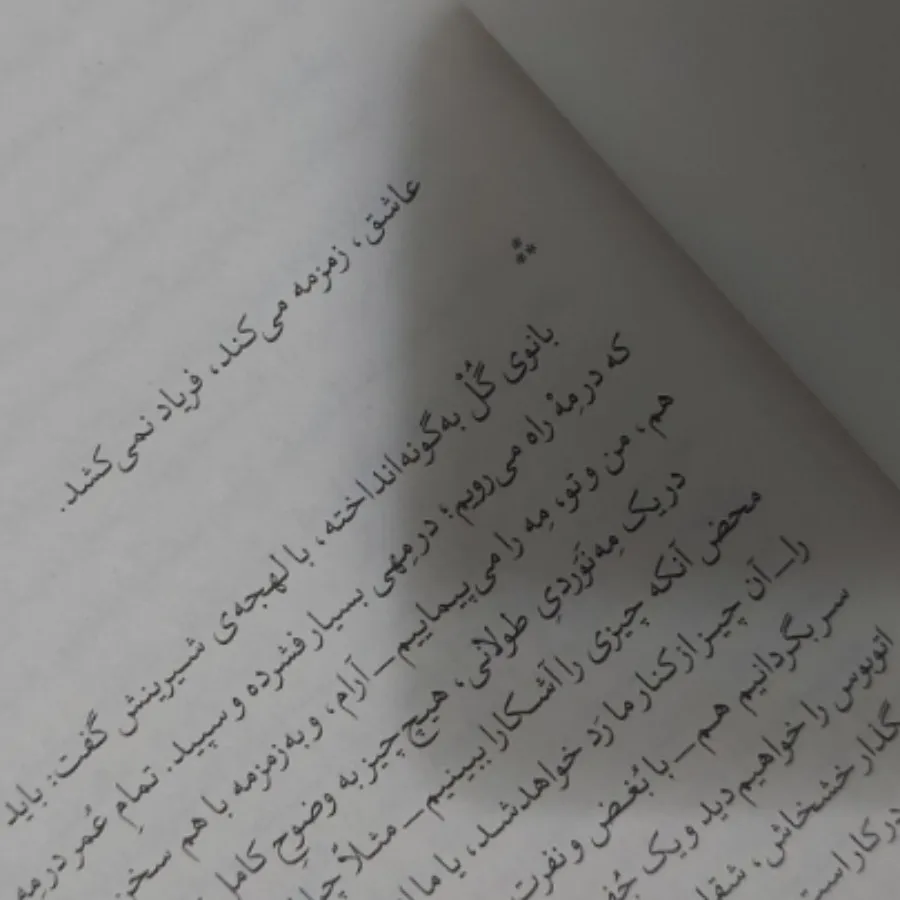 عاشق، زمزمه می‌کند، فریاد نمی‌کشد.
بانوی گُل به‌گونه‌انداخته، با لهجه‌ی شیرینش گفت: باید
که در مِهْ راه می‌رویم؛ در مِهی بسیار فشرده و سپید. تمامِ عُمر در مِه
هم، من و تو، مِه را می‌پیماییم ــ آرام، و به‌زمزمه با هم سخن
در یک مِه‌نَوَردیِ طولانی، هیچ چیز به وضوحِ کامل
محض آنکه چیزی را آشکارا ببینیم ــ مثلاً
را ــ آن چیز از کنار ما رَد خواهد شد، یا ما
سر بگردانیم هم ــ با بُغض و نفرت
اتوبوس را خواهیم دید و یک
خشخاش،
در کار است